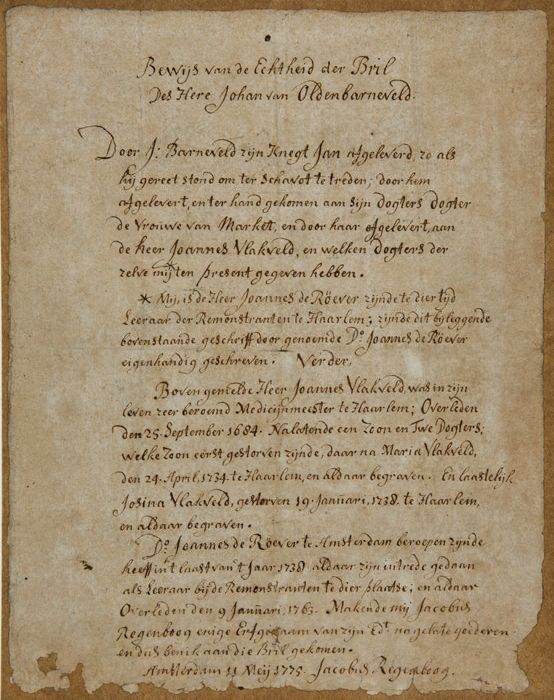 Bewijs van de Echtheid der Bril
Des Here Johan van Oldenbarneveld.
Door J: Barneveld zijn Knegt Jan afgeleverd, zo als
hij gereet stond om ter schavot te treden; door hem
afgelevert, en ter hand gekomen aan sijn dogters Dogter
de Vrouwe van Market, en door haar afgelevert, aan
de heer Joannes Vlakveld, en welken Dogters der
zelve mij ten present gegeven hebben.
* Mij, is de Heer Joannes de Röever zijnde te dier tijd
Leeraar der Remonstranten te Haarlem; zijnde dit bijleggende
bovenstaande geschrift door genoemde Do. Joannes de Röever
eigenhandig geschreven. Verder,
Boven gemelde Heer Joannes Vlakveld, was in zijn
leven zeer beroemd Medicijnmeester te Haarlem; Overleden
den 25. September 1684. Nalatende een Zoon en Twe Dogters;
welke Zoon eerst gestorven zijnde, daar na Maria Vlakveld,
den 24. April, 1734. te Haarlem, en aldaar begraven. En laastelijk
Josina Vlakveld, gestorven 19. Januari, 1738. te Haarlem,
en aldaar begraven.
Do. Joannes de Röever te Amsterdam beroepen zijnde
heeft in't laast van 't Jaar 1738 aldaar zijn intrede gedaan
als Leeraar bij de Remonstranten te dier plaatse; en aldaar
Overleden den 9 Januari, 1763. Makende mij Jacobus
Regenboog enige Erfgenaam van zijn Ed. nagelate goederen
en dus ben ik aan die Bril gekomen.
Amsterdam 11 Meij 1775. Jacobus Regenboog.